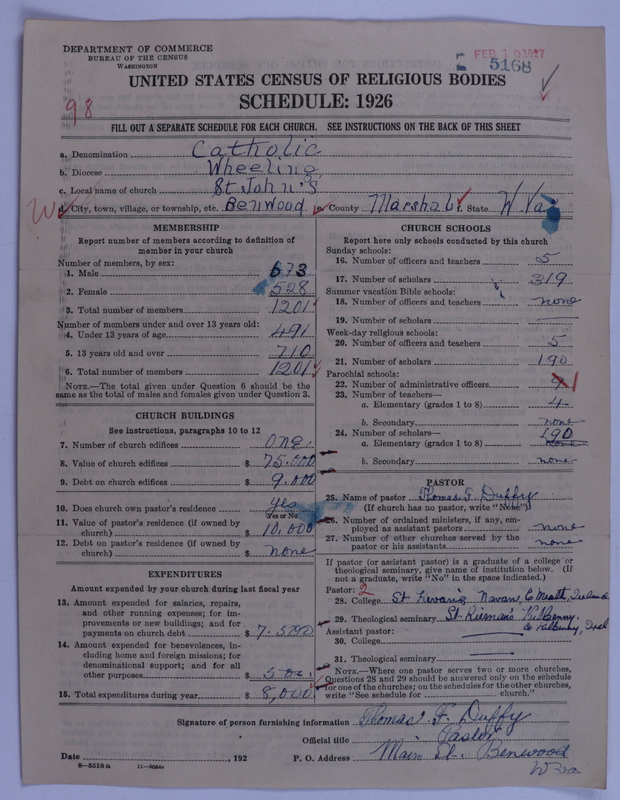 DEPARTMENT OF COMMERCE
BUREAU OF THE CENSUS
WASHINGTON
FEB 10 1927
5168
98
UNITED STATES CENSUS OF RELIGIOUS BODIES
SCHEDULE: 1926
FILL OUT A SEPARATE SCHEDULE FOR EACH CHURCH. SEE INSTRUCTIONS ON THE BACK OF THIS SHEET
a. Denomination Catholic
b. Diocese Wheeling
c. Local name of church St John's
d. City, town, village, or township, etc. Benwood e. County Marshall f. State W. Va
MEMBERSHIP
Report number of members according to definition of
member in your church
Number of members, by sex:
1. Male 673
2. Female 528
3. Total number of members 1201
Number of members under and over 13 years old:
4. Under 13 years of age 491
5. 13 years old and over 710
6. Total number of members 1201
NOTE.—The total given under Question 6 should be the
same as the total of males and females given under Question 3.
CHURCH BUILDINGS
See instructions, paragraphs 10 to 12
7. Number of church edifices one
8. Value of church edifices $ 75.000
9. Debt on church edifices $ 9.000
10. Does church own pastor's residence yes
Yes or No
11. Value of pastor's residence (if owned by
church) $ 10,000
12. Debt on pastor's residence (if owned by
church) $ none
EXPENDITURES
Amount expended by your church during last fiscal year
13. Amount expended for salaries, repairs,
and other running expenses; for im-
provements or new buildings; and for
payments on church debt $ 7.500
14. Amount expended for benevolences, in-
cluding home and foreign missions; for
denominational support; and for all
other purposes $ 500
15. Total expenditures during year $ 8,000
CHURCH SCHOOLS
Report here only schools conducted by this church
Sunday schools:
16. Number of officers and teachers 5
17. Number of scholars 319
Summer vacation Bible schools:
18. Number of officers and teachers none
19. Number of scholars
Week-day religious schools:
20. Number of officers and teachers 5
21. Number of scholars 190
Parochial schools:
22. Number of administrative officers 1
23. Number of teachers—
a. Elementary (grades 1 to 8) 4
b. Secondary none
24. Number of scholars—
a. Elementary (grades 1 to 8) 190
b. Secondary none
PASTOR
25. Name of pastor Thomas F. Duffy
(If church has no pastor, write "None")
26. Number of ordained ministers, if any, em-
ployed as assistant pastors none
27. Number of other churches served by the
pastor or his assistants none
If pastor (or assistant pastor) is a graduate of a college or
theological seminary, give name of institution below. (If
not a graduate, write "No" in the space indicated.)
Pastor: 2
28. College St Navan, Co Meath, Ireland
29. Theological seminary St Kieran's Kilkenny
Co Kilkenny, Irel
Assistant pastor:
30. College
31. Theological seminary
NOTE.—Where one pastor serves two or more churches,
Questions 28 and 29 should be answered only on the schedule
for one of the churches; on the schedules for the other churches,
write "See schedule for church."
Signature of person furnishing information Thomas F. Duffy
Official title Pastor
Date , 192 P. O. Address Main St. Benwood
W Va
8—5519a 11—9084a